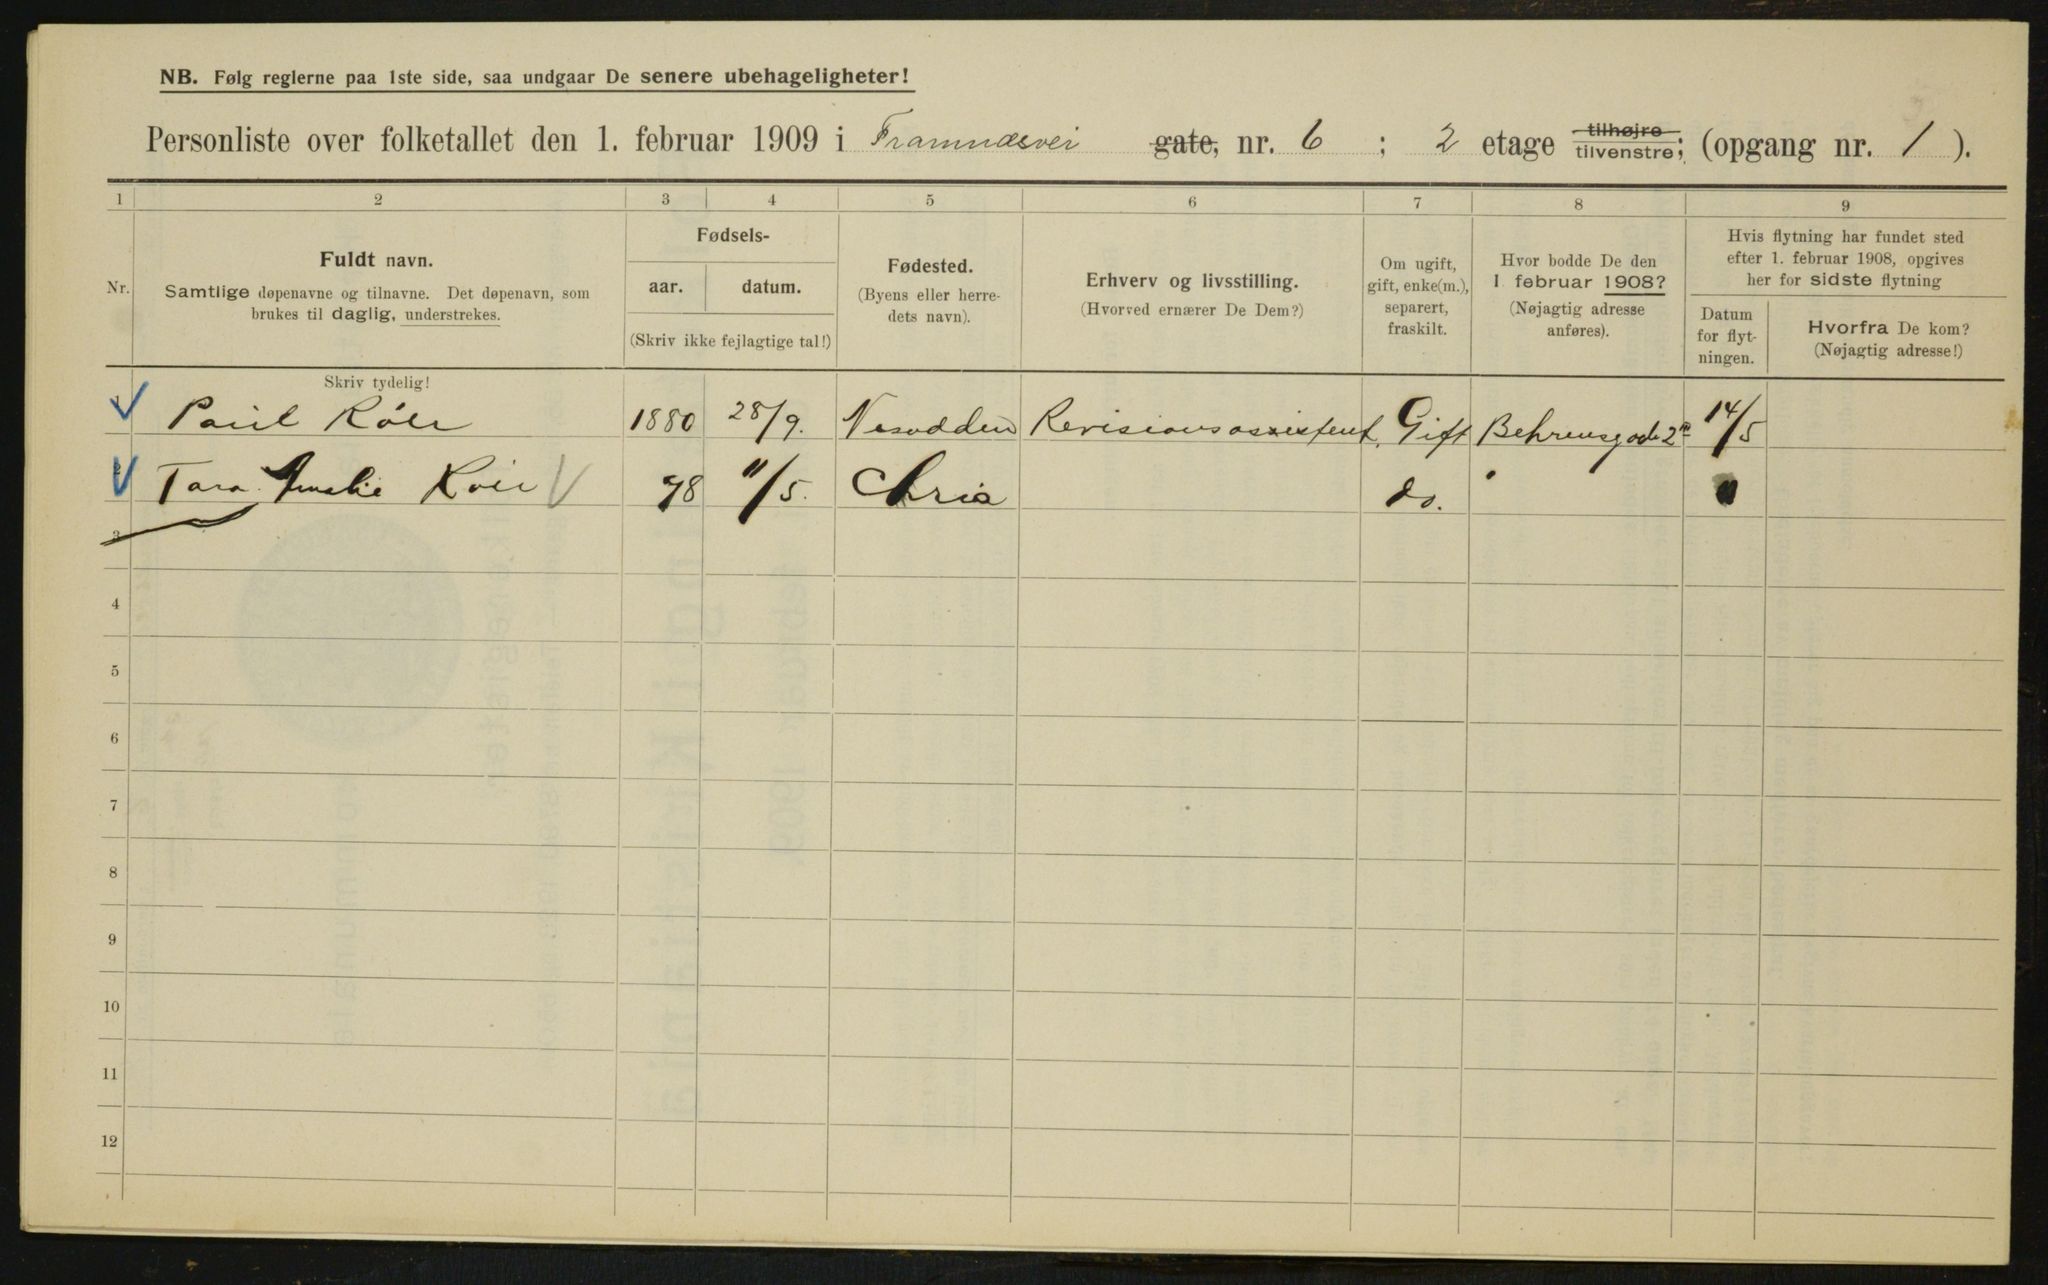 NB. Følg reglerne paa 1ste side, saa undgaar De senere ubehageligheter!
Personliste over folketallet den 1. februar 1909 i Framnæsvei gate, nr. 6 ; 2 etage tilhøjre tilvenstre; (opgang nr. 1 ).
1 2 3 4 5 6 7 8 9
Nr.
Fuldt navn.
Samtlige døpenavne og tilnavne. Det døpenavn, som
brukes til daglig, understrekes.
Skriv tydelig!
Fødsels-
aar. datum.
(Skriv ikke fejlagtige tal!)
Fødested.
(Byens eller herre-
dets navn).
Erhverv og livsstilling.
(Hvorved ernærer De Dem?)
Om ugift,
gift, enke(m.),
separert,
fraskilt.
Hvor bodde De den
1 februar 1908?
(Nøjagtig adresse
anføres).
Hvis flytning har fundet sted
efter 1. februar 1908, opgives
her for sidste flytning
Datum
for flyt-
ningen.
Hvorfra De kom?
(Nøjagtig adresse!)
Paul Röer 1880 28/9. Nesodden Revisionsassistent. Gift Behrensgade 2 14/5
2 Amalie Röer 78 11/5. Chria do. "
3
4
5
6
7
8
9
10
11
12